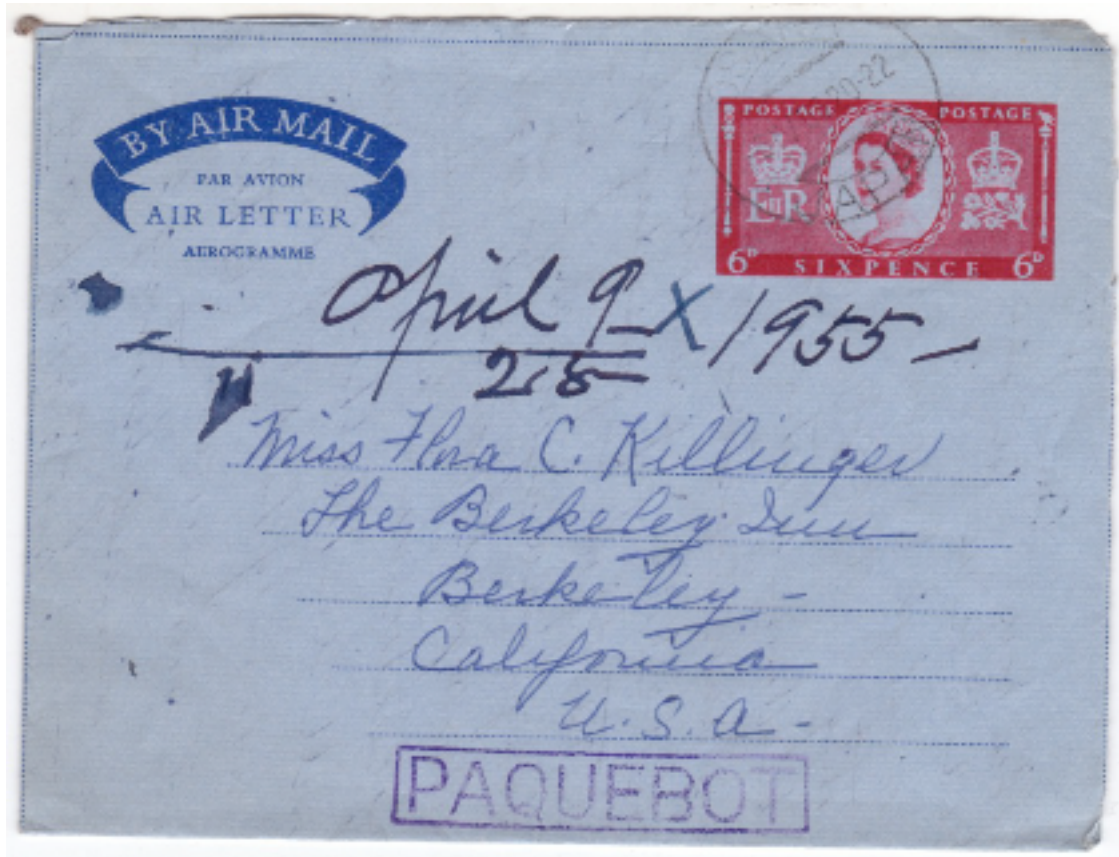 BY AIR MAIL
PAR AVION
AIR LETTER
AEROGRAMME
POSTAGE POSTAGE
EIIR
6D SIXPENCE 6D
20-22
JAPAN
April 9 X 1955 -
25
Miss Flora C. Killinger
The Berkeley Inn
Berkeley -
California
U.S.A -
PAQUEBOT